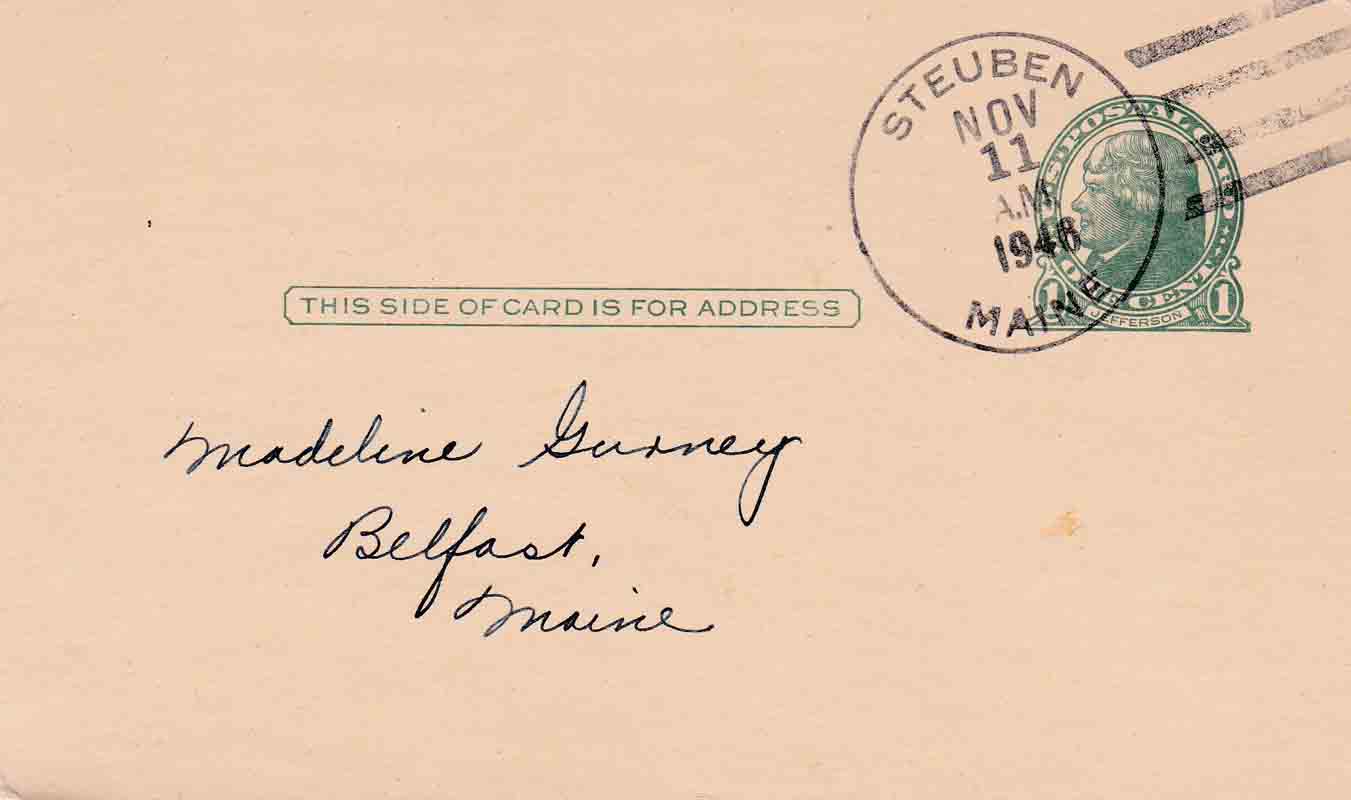 STEUBEN
NOV
11
A.M.
1948
MAINE
U.S. POSTAL CARD
ONE CENT
1 1
JEFFERSON
THIS SIDE OF CARD IS FOR ADDRESS
Madeline Gurney
Belfast,
Maine